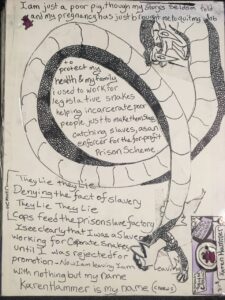 I am just a poor pig, though my story's seldom told
and my pregnancy has just brought me to quit my job
to
protect my
health & my family
i used to work for
legislative snakes
helping incarcerate poor
people just to make them slaves
catching slaves, as an
enforcer for the for-profit
Prison Scheme
They lie they lie
Denying the fact of slavery
They Lie They Lie
Cops feed the prison slave factory
I see clearly that I was a Slave
working for Corporate Snakes
until I was rejected for
promotion - Now I am leaving I am
Leaving
with nothing but my name
Karen Hammer is my name (chorus)
Karen Hammer